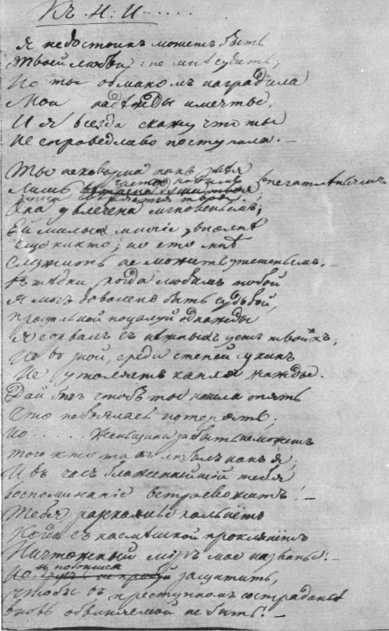 Къ Н. И.....
Я недостоинъ можетъ быть
Твоей любви: не мнѣ судить;
Но ты обманомъ наградила
Мои надежды и мечты,
И я всегда скажу что ты
Несправедливо поступила. —
Ты не коварна какъ змѣя
Лишь часто новымъ впечатлѣньямъ
Душа вверяется твоя.
Она увлечена мгновеньемъ;
Ей милы многіе, вполнѣ
Еще никто; но это мнѣ
Служить не можетъ утешеньемъ. —
Въ те дни, когда любимъ тобой
Я могъ доволенъ быть судьбой,
Прощальный поцалуй однажды
Я сорвалъ съ нежныхъ устъ твоихъ,
Но въ зной, среди степей сухихъ
Не утоляетъ капля жажды.
Дай Богъ чтобъ ты нашла опять
Что не боялась потерять;
Но..... женщина забыть не можетъ
Того кто такъ любилъ какъ я;
И въ часъ блаженнейшій тебя
Воспоминаніе встревожитъ! —
Тебя раскаянье кольнетъ
Когда съ насмешкой проклянетъ
Ничтожный міръ мое названье! —
И побоишься защитить,
Чтобы въ преступномъ состраданьѣ
Вновь обвиняемой не быть! —